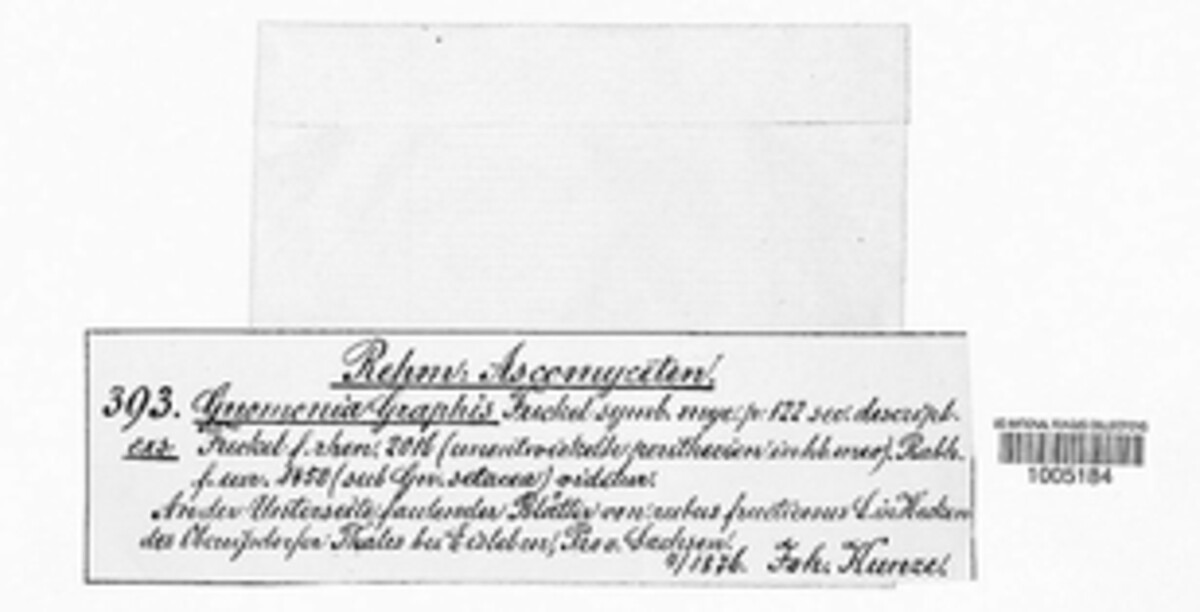 Rehm: Ascomyceten!
393. Gnomonia Graphis Fuckel symb. myc: p 122 sec. descript.
exs. Fuckel f. rhen: 2016 (unentwickelte perithecien in hb. meo). Rabh.
f. eur. 2450 (sub Gn. setacea) videtur:
An der Unterseite faulender Blätter von rubus fruticosus L in Hecken
des Thales bei Eisleben, Prov. Sachsen.
/1876. Joh. Kunze.
US NATIONAL FUNGUS COLLECTIONS
1005184